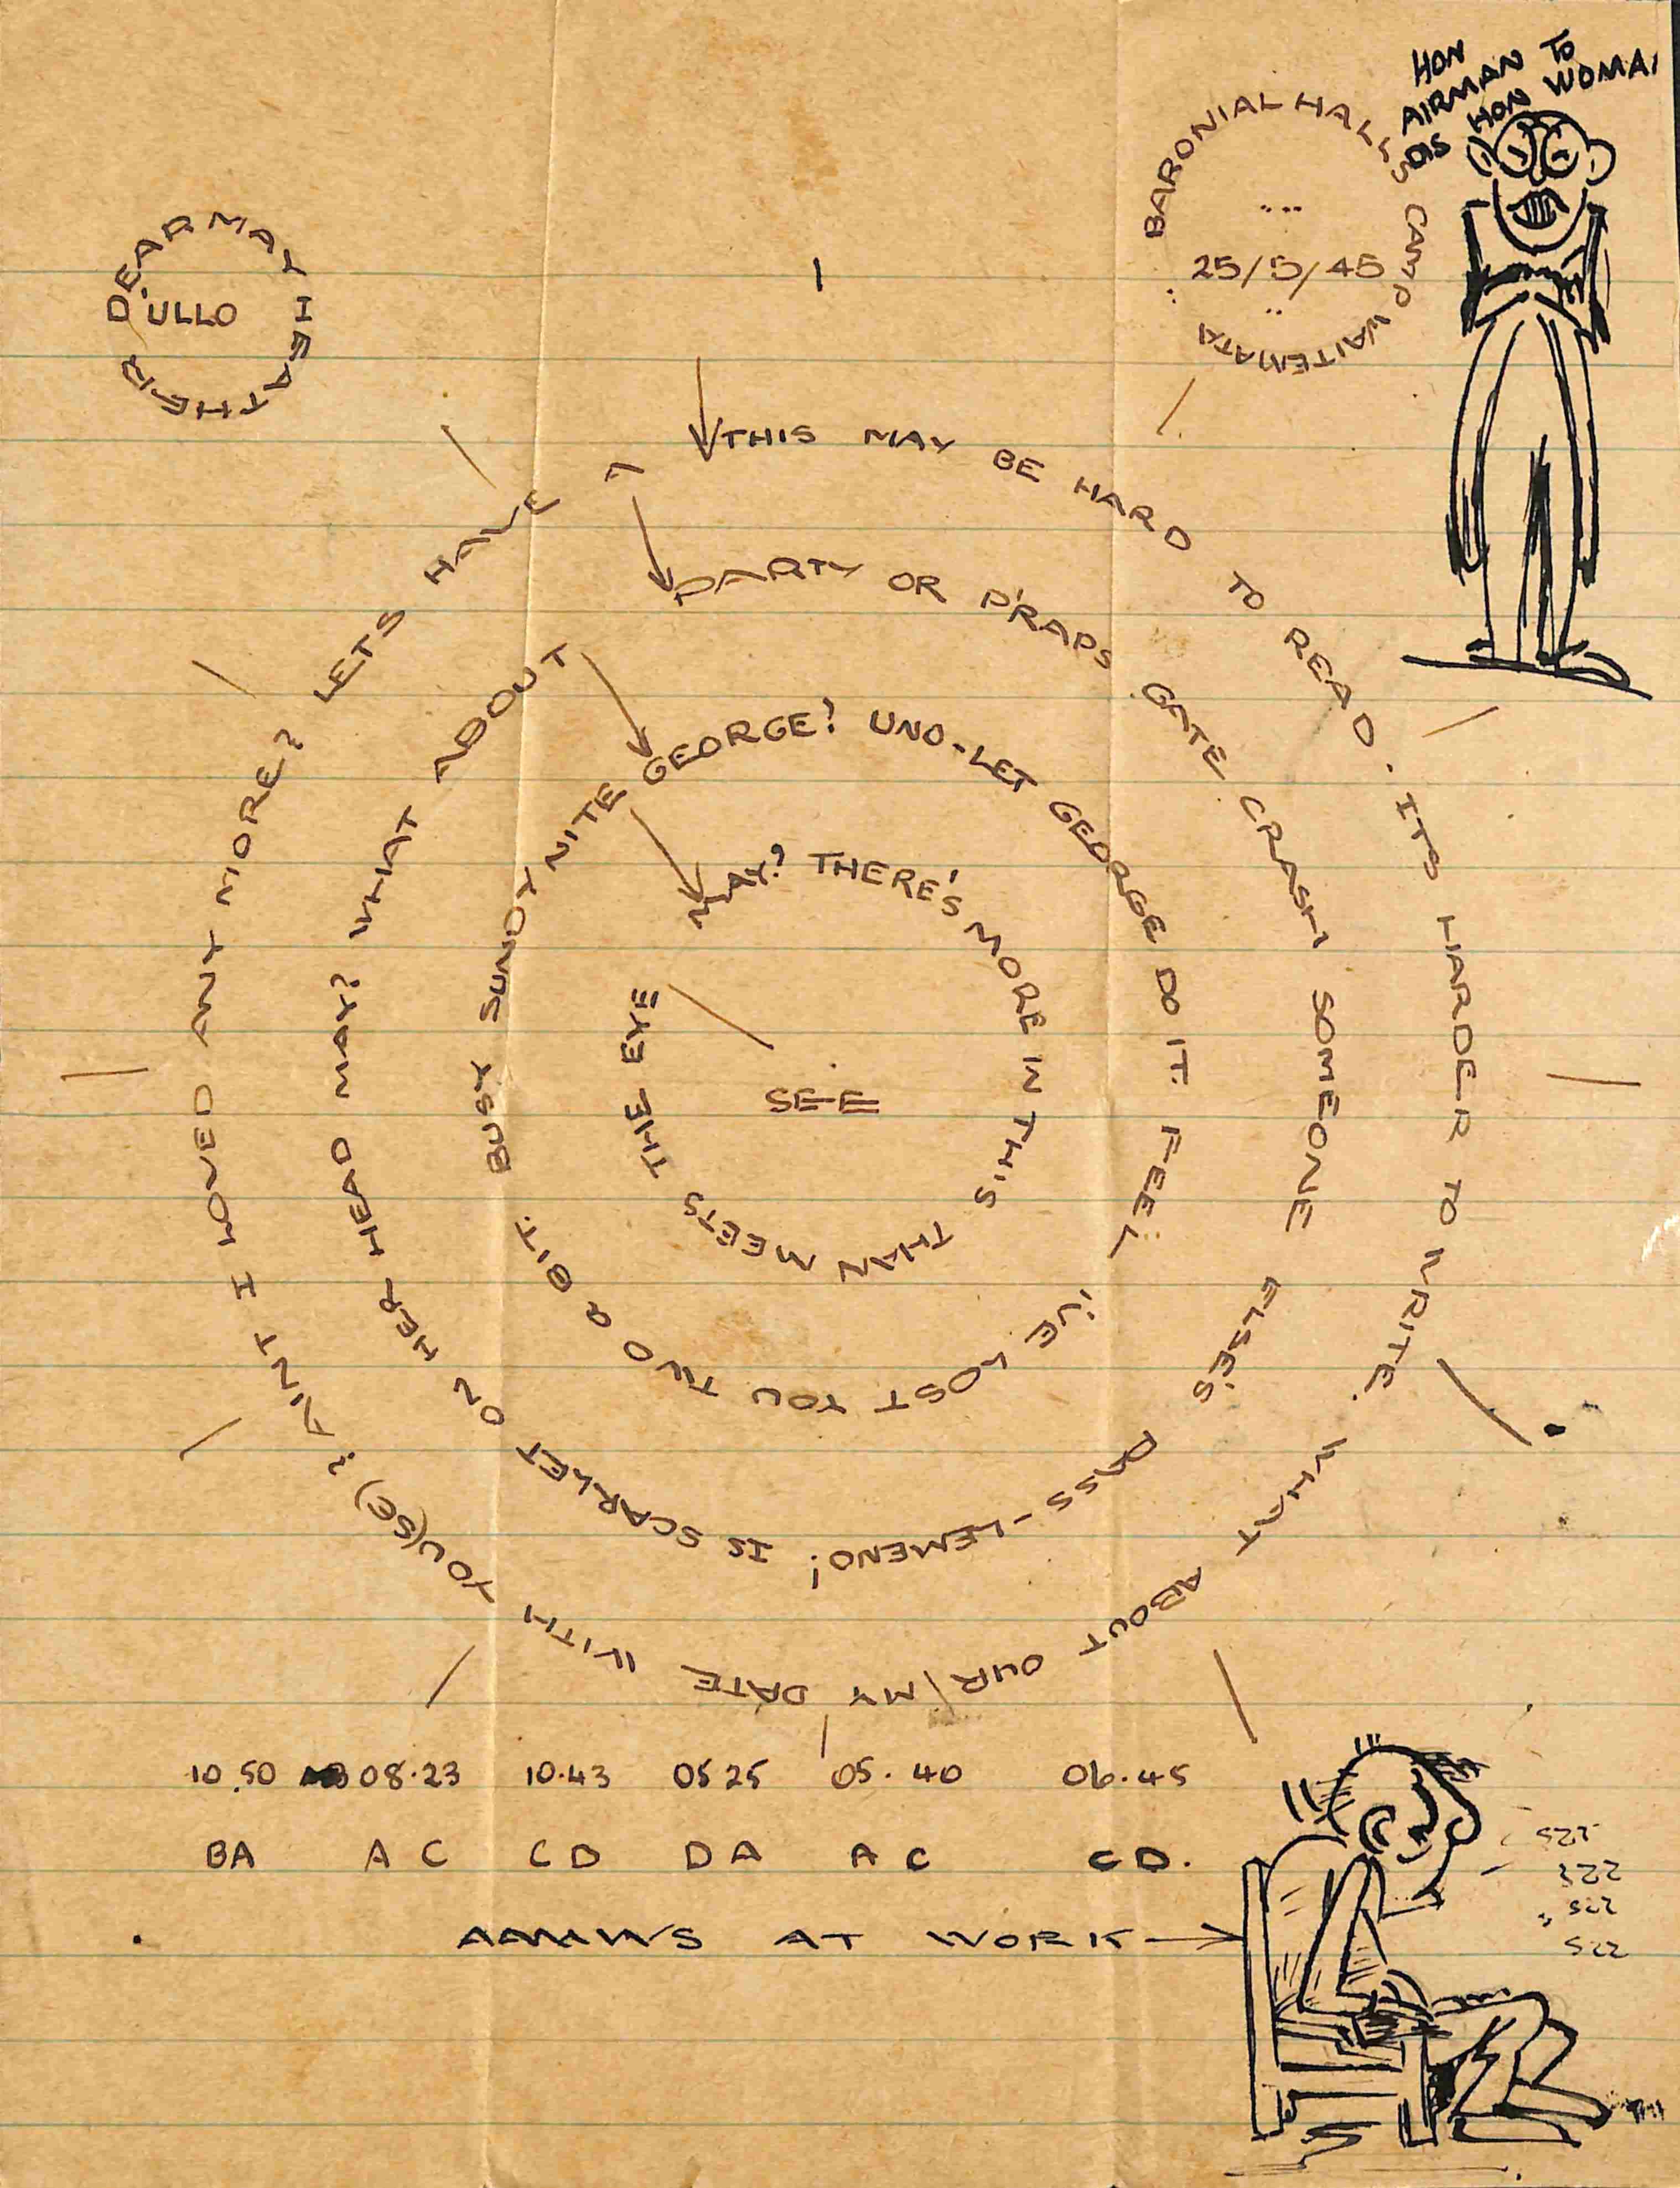 HON
AIRMAN TO
AS HON WOMA
BARONIAL HALLS CAMP WAITEMATA
25/5/45
DEAR MAY HEATHER
'ULLO
1
THIS MAY BE HARD TO READ. ITS HARDER TO WRITE. WHAT ABOUT OUR/MY DATE WITH YOU(SE)? AINT I WOVED ANY MORE? LETS HAVE A
PARTY OR P'RAPS GATE CRASH SOMEONE ELSE'S PASS-LEMENO! IS SCARLET ON HER HEAD MAY? WHAT ABOUT
BUSY SUNDY NITE GEORGE? UNO-LET GEORGE DO IT. FEEL I'VE LOST YOU TWO A BIT.
MAY? THERE'S MORE IN THIS THAN MEETS THE EYE
SEE
10.50 08.23 10.43 0525 05.40 06.45
BA AC CD DA AC CD.
AT WORK